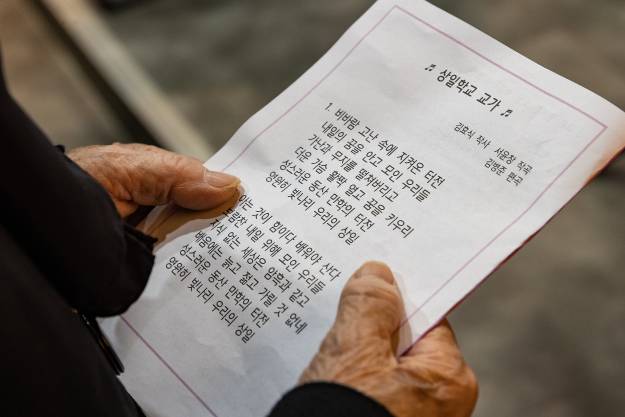 ♬ 상일학교 교가 ♬
김효식 작사 서윤창 작곡
김병준 편곡
1. 비바람 고난 속에 지켜온 터전
내일의 꿈을 안고 모인 우리들
가난과 무지를 떨쳐버리고
다운 가슴 활짝 열고 꿈을 키우리
성스러운 동산 만학의 터전
영원히 빛나리 우리의 상일
아는 것이 힘이다 배워야 산다
보람찬 내일 위해 모인 우리들
지식 없는 세상은 암흑과 같고
배움에는 늙고 젊고 가릴 것 없네
성스러운 동산 만학의 터전
영원히 빛나리 우리의 상일